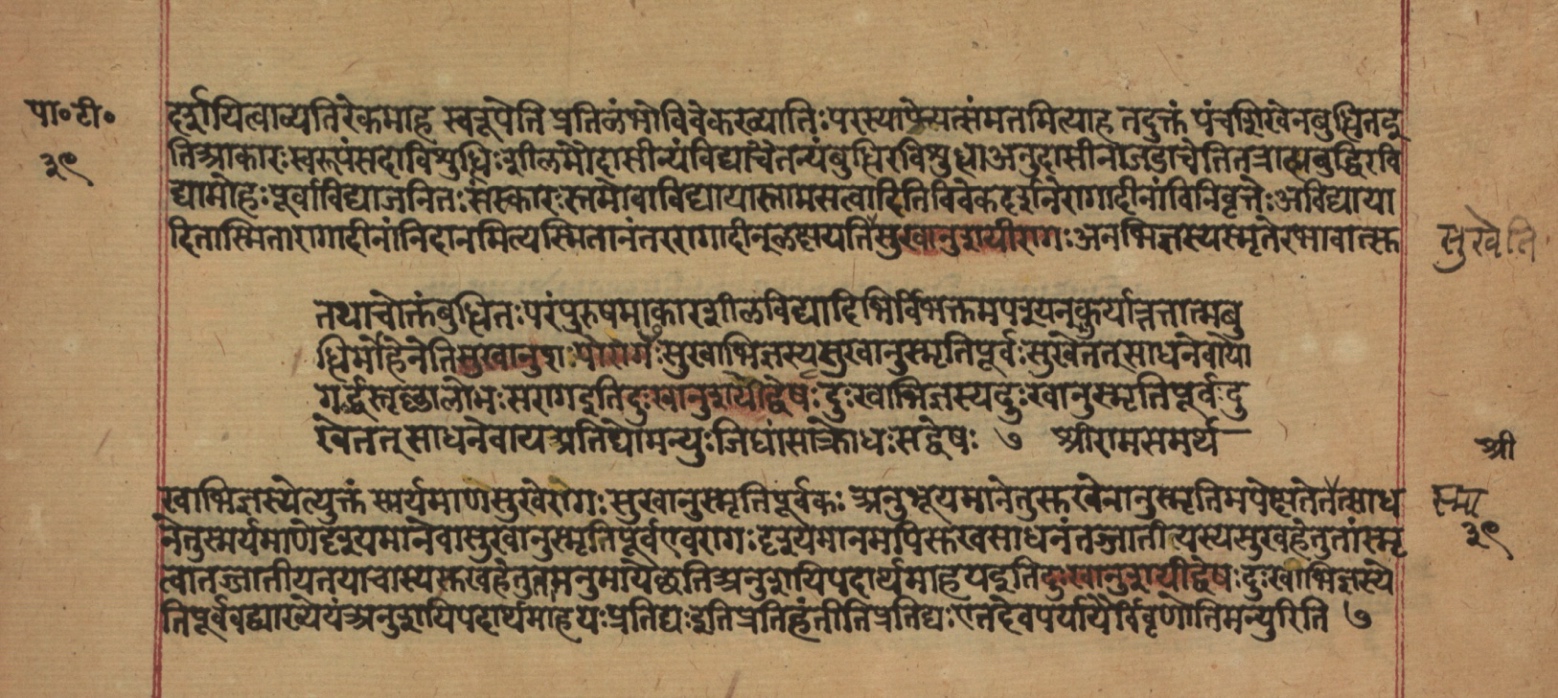 पा॰टी॰
३९
दर्शयित्वाव्यतिरेकमाह स्वरूपेति प्रतिळंभोविवेकख्यातिः परस्याप्येयत्संमतमित्याह तदुक्तं पंचशिखेनबुध्धितइ
तिआकारःस्वरूपंसदाविशुध्धिःशीळमौदासीन्यंविद्याचैतन्यंबुध्धिरविशुध्धाअनुदासीनाजडाचेतितत्रात्मबुद्धिरवि
द्यामोहःपूर्वाविद्याजनितःसंस्कारःस्तमोवाविद्यायास्तामसत्वादितिविवेकदर्शनेरागादीनांविनिवृत्तेःअविद्याया
दितास्मितारागादीनांनिदानमित्यस्मितानंतररागादीनूळक्षयतिसुखानुशयीरागःअनभिज्ञस्यस्मृतेरभावात्सु
सुखेति
तथाचोक्तंबुध्धितःपरंपुरुषमाकारशीळविद्यादिभिर्विभक्तमपश्यनूकुर्यात्तत्रात्मबु
ध्धिंमोहेनेतिसुखानुशयीरागःसुखाभिज्ञस्यसुखानुस्मृतिपूर्वःसुखेतत्साधनेवायो
गर्द्धस्तृष्णालोभःसरागइतिदुःखानुशयीद्वेषःदुःखाभिज्ञस्यदुःखानुस्मृतिपूर्वःदु
खेतत्साधनेवायःप्रतिघोमन्युःजिघांसाक्रोधःसद्वेषः ७ श्रीरामसमर्थ
श्री
खाभिज्ञस्येत्युक्तं स्मर्यमाणेसुखेरागःसुखानुस्मृतिपूर्वकः अनुभूयमानेतुसुखेनानुस्मृतिमपेक्षतेतत्साध
नेतुस्मर्यमाणेदृश्यमानेवासुखानुस्मृतिपूर्वएवरागःदृश्यमानमपिसुखसाधनंतज्जातीयस्यसुखहेतुतांस्मृ
त्वातज्जातीयतयाचास्यसुखहेतुत्वमनुमायेछतिअनुशयिपदार्थमाहयइतिदुःखानुशयीद्वेषःदुःखाभिज्ञस्ये
तिपूर्ववद्व्याख्येयंअनुशयिपदार्थमाहयःप्रतिघःइतिप्रतिहंतीतिप्रतिघःएतदेवपर्यायैर्विवृणोतिमन्युरिति ७
रामा
३९